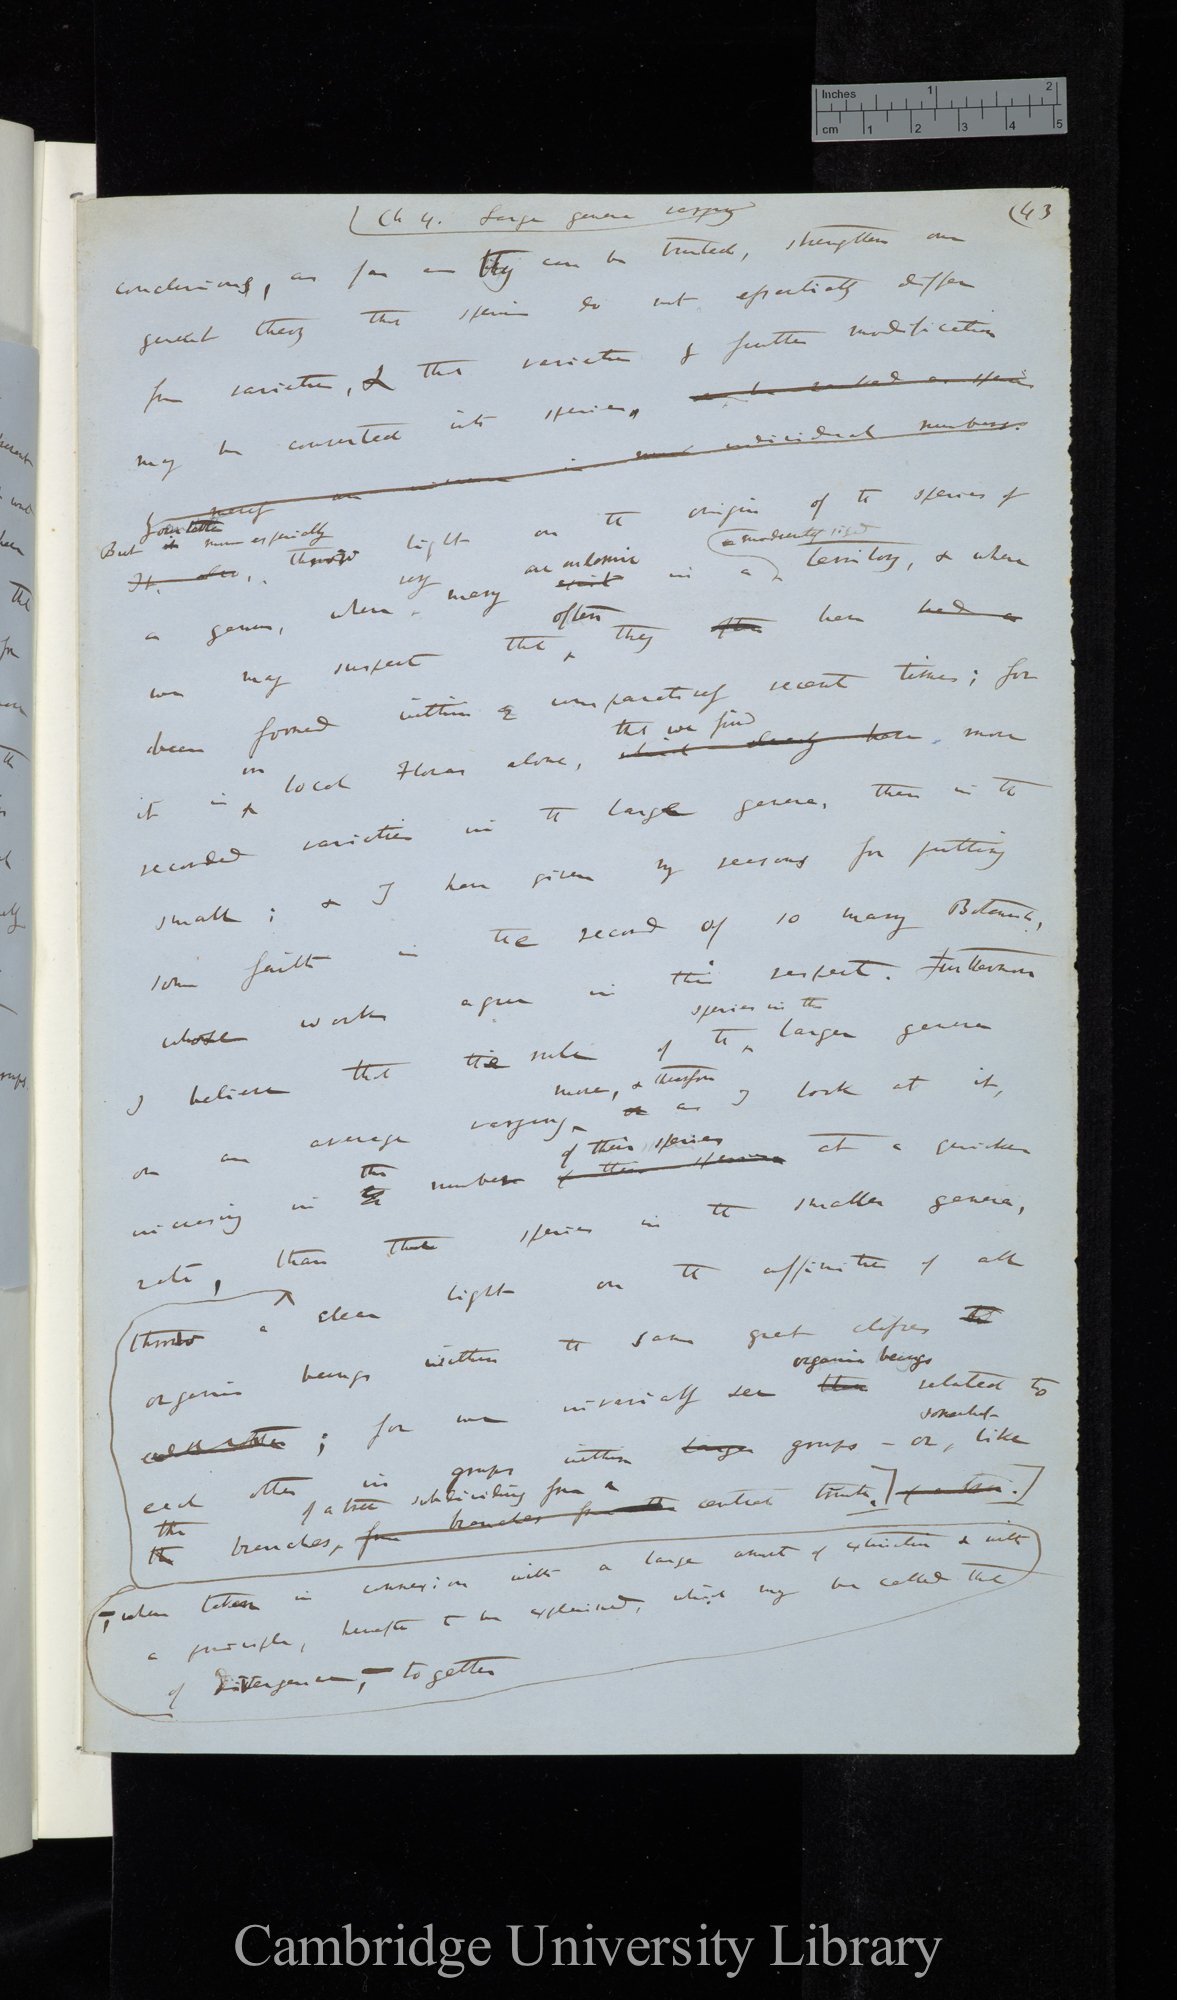 Inches 1 2
cm 1 2 3 4 5
Ch 4. Large genera varying
(43
conclusions, as far as they can be trusted, strengthen our
general theory that species do not essentially differ
from varieties, & that varieties by further modification
may be converted into species,
individual numbers.
But more especially
throws light on the origin of the species of
very are endemic a moderately sized
a genus, when many exist in a territory, & when
often
we may suspect that they often have had a
been formed within a comparatively recent times; for
that we find
it is on local Floras alone, which already have more
recorded varieties in the large genera, than in the
small; & I have given my reasons for putting
some faith in the record of so many Botanists,
whose works agree in this respect. Furthermore
species in the
I believe that the rule of the larger genera
more, & therefore
on an average varying as I look at it,
the of their species
increasing in number of their species at a quicker
rate, than those species in the smaller genera,
throws a clear light on the affinities of all
organic beings within the same great classes
organic beings
; for we invariably see them related to
somewhat
each other in groups within larger groups – or, like
the of a tree subdividing from a
the branches, from branches from the central trunk.]
, when taken in connexion with a large amount of extinction & with
a principle, hereafter to be explained, which may be called that
of Divergence, – together
Cambridge University Library